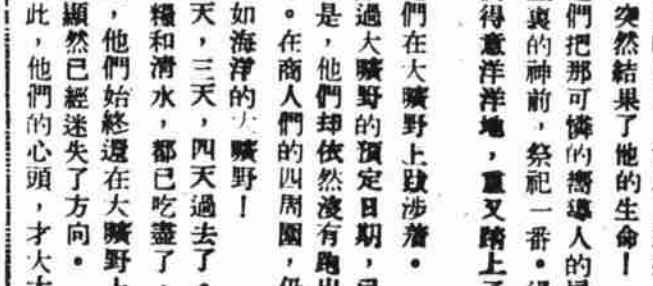 突然結果了他的生命！
們把那可憐的嚮導人的
裏的神前，祭祀一番。
得意洋洋地，重又踏上了
們在大曠野上跋涉着。
過大曠野的預定日期，已
是，他們却依然沒有跑出
。在商人們的四周圍，仍
如海洋的大曠野！
天，三天，四天過去了。
糧和清水，都已吃盡了。
，他們始終還在大曠野上
顯然已經迷失了方向。
此，他們的心頭，才大大